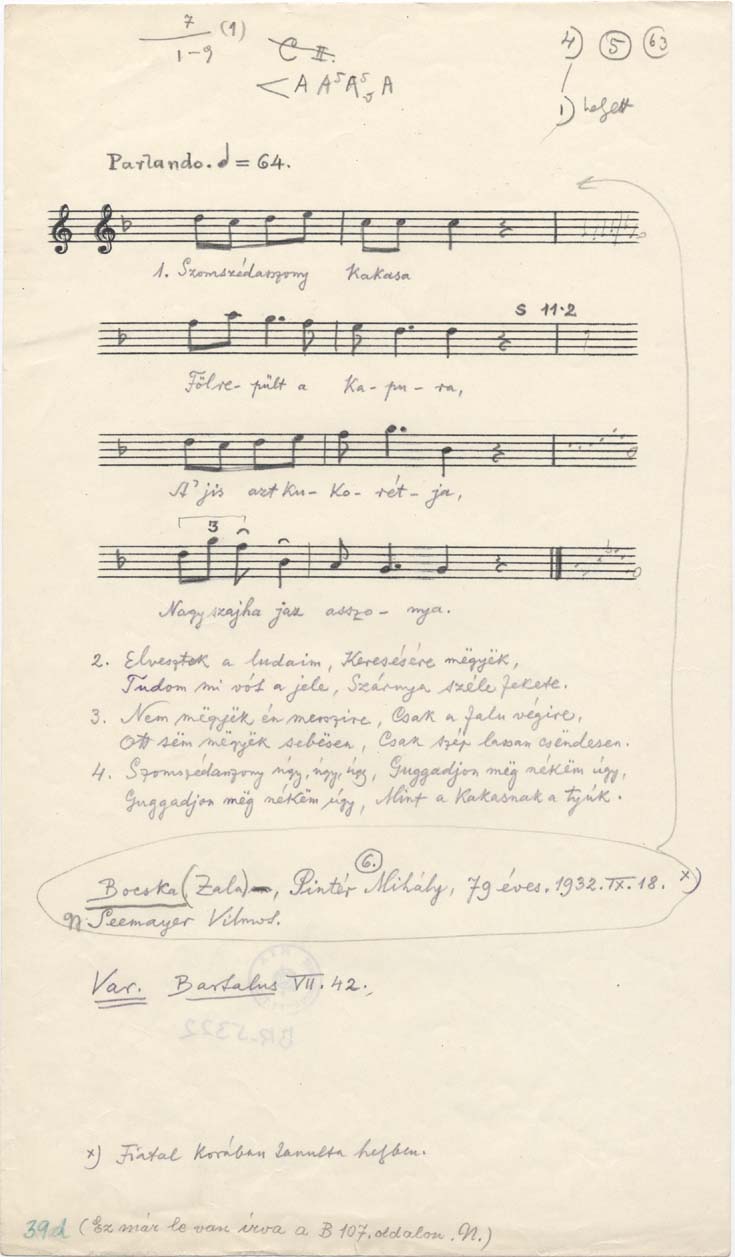 7 (1)
1-9
C II.
< A A⁵ A⁵₅ A
4) 5 63
1) helyett
Parlando. = 64.
1. Szomszédasszony Kakasa
S 11·2
Fölre- pült a Ka- pu- ra,
A' jis azt Ku- Ko- rét- ja,
3
Nagyszajha jaz asszo- nya.
2. Elvesztek a ludaim, Keresésére mëgyëk,
Tudom mi vót a jele, Szárnya széle fekete.
3. Nem mëgyëk én messzire, Csak a falu végire,
Ott sëm mëgyëk sebësen, Csak szép lassan csëndesen.
4. Szomszédasszony úgy, úgy, úgy, Guggadjon mëg nékëm úgy,
Guggadjon mëg nékëm úgy, Mint a Kakasnak a tyúk.
6.
Bocska (Zala), Pintér Mihály, 79 éves. 1932. IX. 18. x)
Seemayer Vilmos.
Var. Bartalus VII. 42.
BR-5322
x) Fiatal Korában tanulta helyben.
39d (Ez már le van írva a B 107. oldalon. N.)